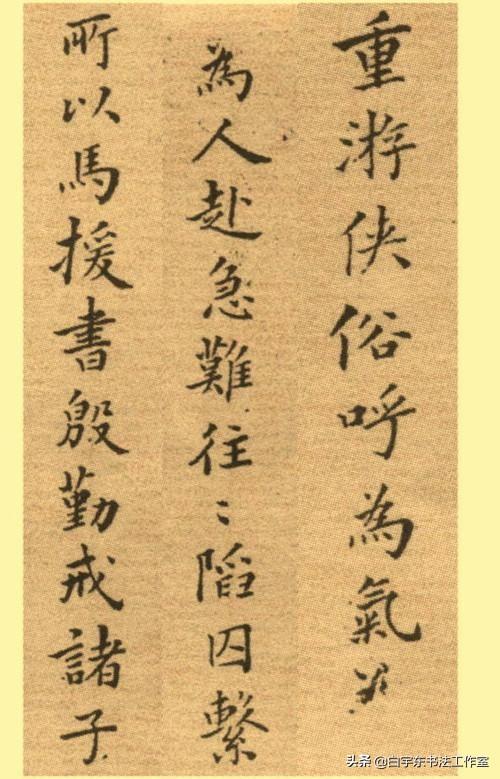 重游侠俗呼為氣义
為人赴急難往〻陷囚繫
所以馬援書殷勤戒諸子
头条 @白宇东书法工作室